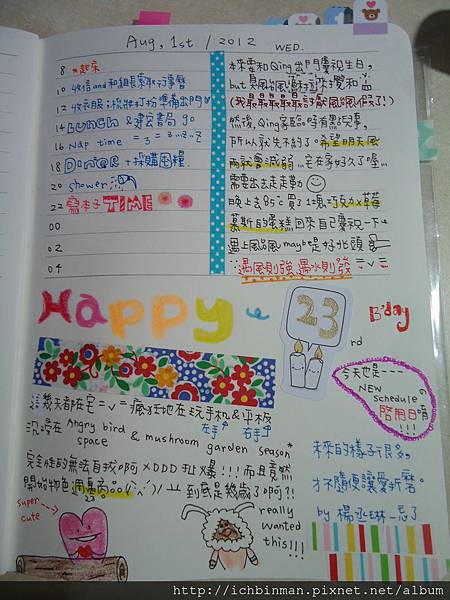 Aug, 1st / 2012 WED.
8 *起床
10 收信and和組長索取行事曆
12 收衣服；梳妝打扮準備出門
14 Lunch & 建宏書局 go
16 Nap time = 3 = z..z..z
18 Dinner + 採購困糧
20 shower
22 寫本子TIME
00
02
04
本來要和Qing出門慶祝生日,
but 颱風
(我最最最最最討厭颱風假了!)
然後, Qing家臨時有點兒事,
所以就先不約了。希望明天風
雨就會減弱 宅在家好久了喔...
需要出去走走動
晚上去85°C買了1塊巧克力x草莓
慕斯的蛋糕回來自己慶祝一下
遇上颱風maybe是好兆頭
∵遇風則強、遇水則發 =v=
Happy
23
rd
B'day
今天也是---
NEW
schedule
啓用日唷
!!!
這幾天都在宅=v=瘋狂地在玩手機&平板
沉浸在Angry bird 左手 右手
space & mushroom garden season*
完全性的無法自拔啊 ×DDD 扯爆!!! 而且竟然
開始物色周邊商品 到底是幾歲了啊?!
super
cute
really
wanted
this!!!
未來的樣子很多,
才不隨便讓愛折磨。
by 楊丞琳_忘了
http://ichbinman.pixnet.net/album